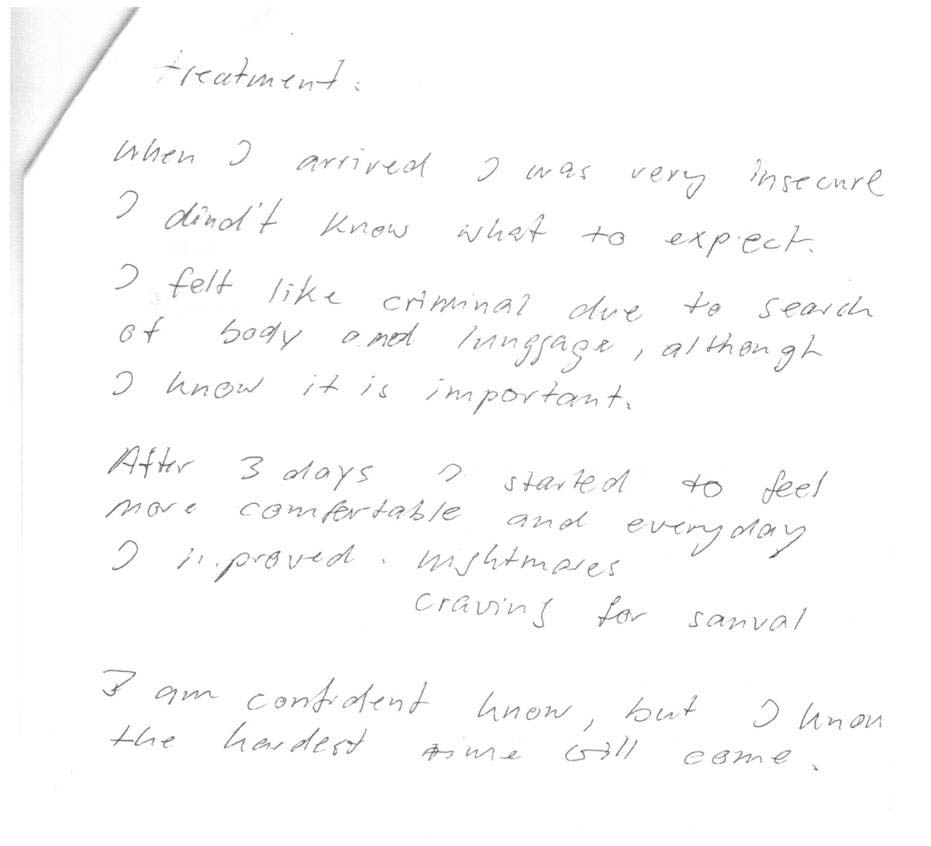 treatment:
When I arrived I was very insecure
I dind't know what to expect.
I felt like criminal due to search
of body and lunggage, although
I know it is important.
After 3 days I started to feel
more comfertable and everyday
I improved. nightmares
craving for sanval
I am confident know, but I know
the hardest time will come.